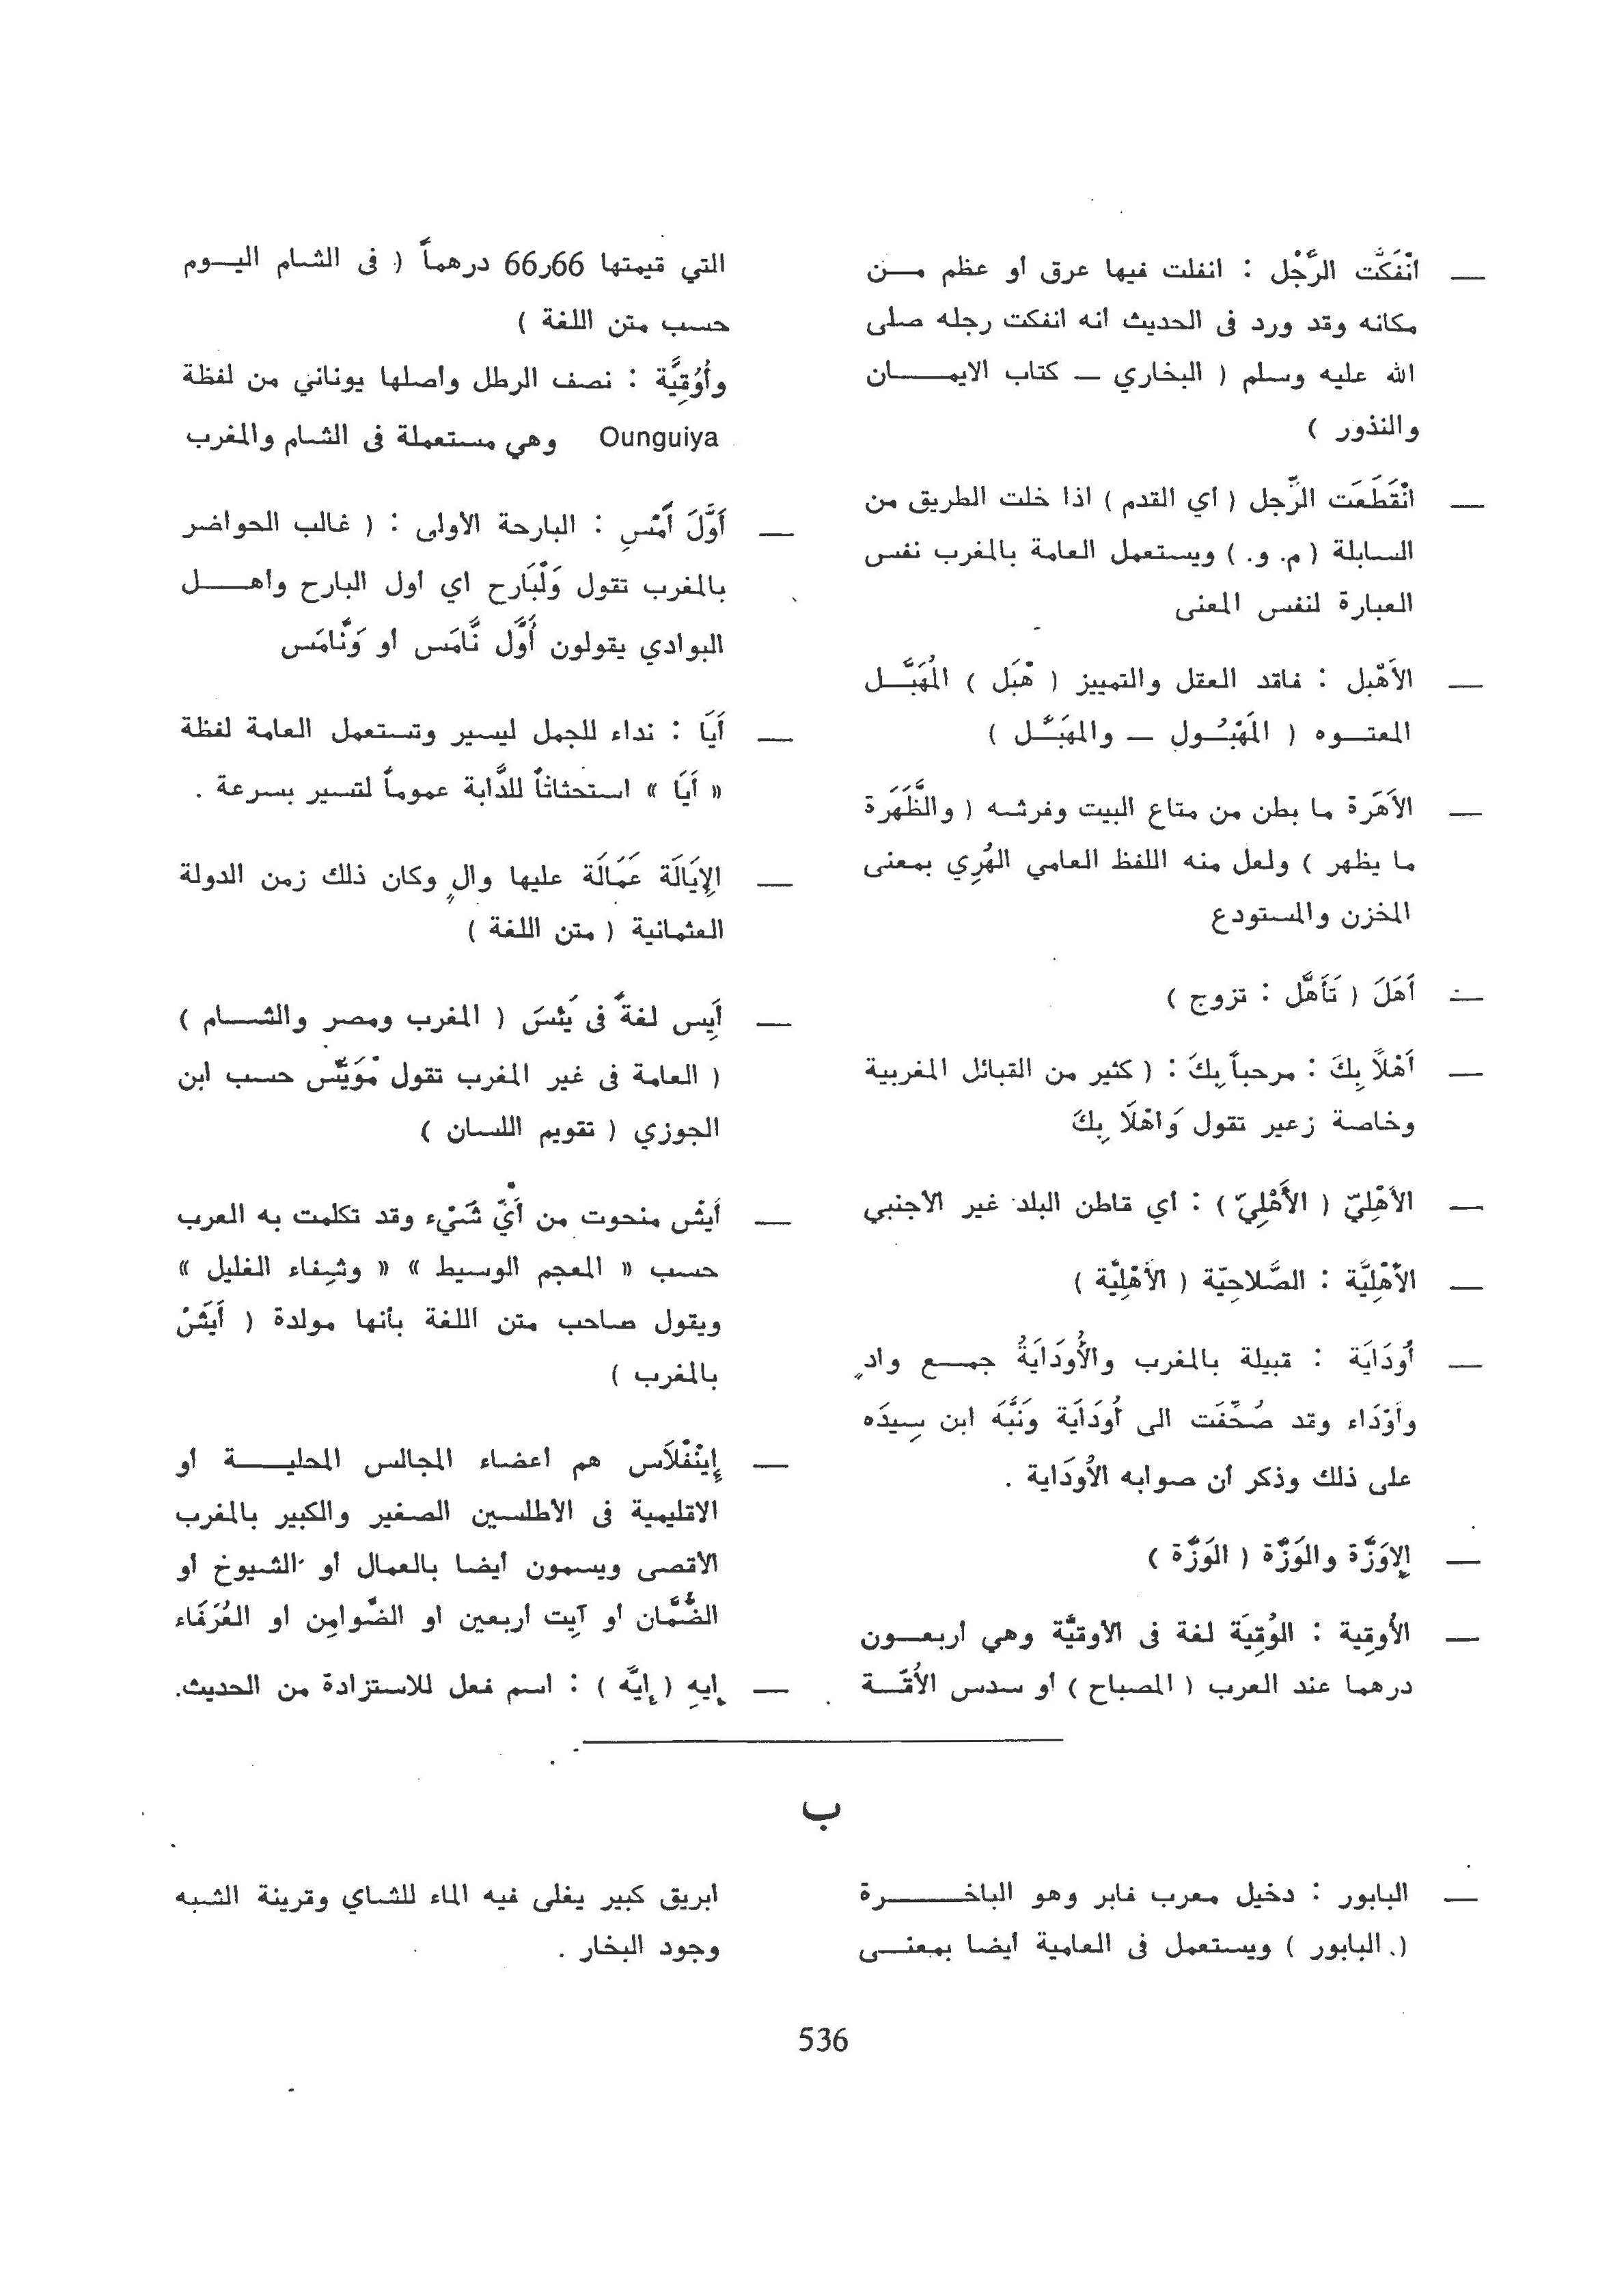 — انْفَكَّت الرَّجْل : انفلت فيها عرق أو عظم مـــن
مكانه وقد ورد فى الحديث أنه انفكت رجله صلى
الله عليه وسلم ( البخاري — كتاب الايمـــــان
والنذور )
— انْقَطَعَت الرِّجل ( أي القدم ) اذا خلت الطريق من
السابلة ( م. و. ) ويستعمل العامة بالمغرب نفس
العبارة لنفس المعنى
— الأَهْبل : فاقد العقل والتمييز ( هْبَل ) المُهَبَّــل
المعتـــوه ( المَهْبُــول — والمهَبَّــل )
— الأَهَرة ما بطن من متاع البيت وفرشه ( والظَّهَرة
ما يظهر ) ولعل منه اللفظ العامي الهُرِي بمعنى
المخزن والمستودع
— أَهَلَ ( تَأَهَّل : تزوج )
— أَهْلاً بِكَ : مرحباً بِكَ : ( كثير من القبائل المغربية
وخاصة زعير تقول وَاهْلَا بِكَ
— الأَهْلِيّ ( الأَهْلِيّ ) : أي قاطن البلد غير الأجنبي
— الأَهْلِيَّة : الصَّلاحِيّة ( الأَهْلِيَّة )
— أُودَايَة : قبيلة بالمغرب والأُودَايَةُ جمـــع وادٍ
وأَوْدَاء وقد صُحِّفَت الى أُودَاَية وَنَبَّهَ ابن سِيدَه
على ذلك وذكر أن صوابه الأُودَاية .
— الإِوَزَّة والوَزَّة ( الوَزَّة )
— الأُوقِية : الوُقِيَة لغة فى الأوقيَّة وهي أربعــون
درهما عند العرب ( المصباح ) أو سدس الأُقَّــة
التي قيمتها 66ر66 درهماً ( فى الشام اليـــوم
حسب متن اللغة )
وأُوُقِيَّة : نصف الرطل وأصلها يوناني من لفظة
Ounguiya وهي مستعملة فى الشام والمغرب
— أَوَّلَ أَمْسِ : البارحة الأولى : ( غالب الحواضر
بالمغرب تقول وَلْبَارح اي أول البارح وأهـــــل
البوادي يقولون أَوَّل نَّامَس أو وَنَّامَس
— أَيَا : نداء للجمل ليسير وتستعمل العامة لفظة
« أَيَا » استحثاثاً للدَّابة عموماً لتسير بسرعة .
— الإِيَالَة عَمَالَة عليها والٍ وكان ذلك زمن الدولة
العثمانية ( متن اللغة )
— أَيِس لغةً فى يَئسَ ( المغرب ومصر والشـــام )
( العامة فى غير المغرب تقول مْوَيَّس حسب ابن
الجوزي ( تقويم اللسان )
— أَيْش منحوت من أَيّْ شَيْء وقد تكلمت به العرب
حسب « المعجم الوسيط » « وشِفاء الغليل »
ويقول صاحب متن اللغة بأنها مولدة ( أَيَشْ
بالمغرب )
— إِينْفْلاَس هم أعضاء المجالس المحليــــة أو
الاقليمية فى الأطلسين الصغير والكبير بالمغرب
الأقصى ويسمون أيضا بالعمال أو الشيوخ أو
الضُّمَّان أو آيت أربعين او الضَّوامِن او العُرَفَاء
— إِيهِ ( إِيَّه ) : اسم فعل للاستزادة من الحديث.
ب
— البابور : دخيل معرب فابر وهو الباخـــــــرة
( البابور ) ويستعمل فى العامية أيضا بمعنــى
ابريق كبير يغلى فيه الماء للشاي وقرينة الشبه
وجود البخار .
536